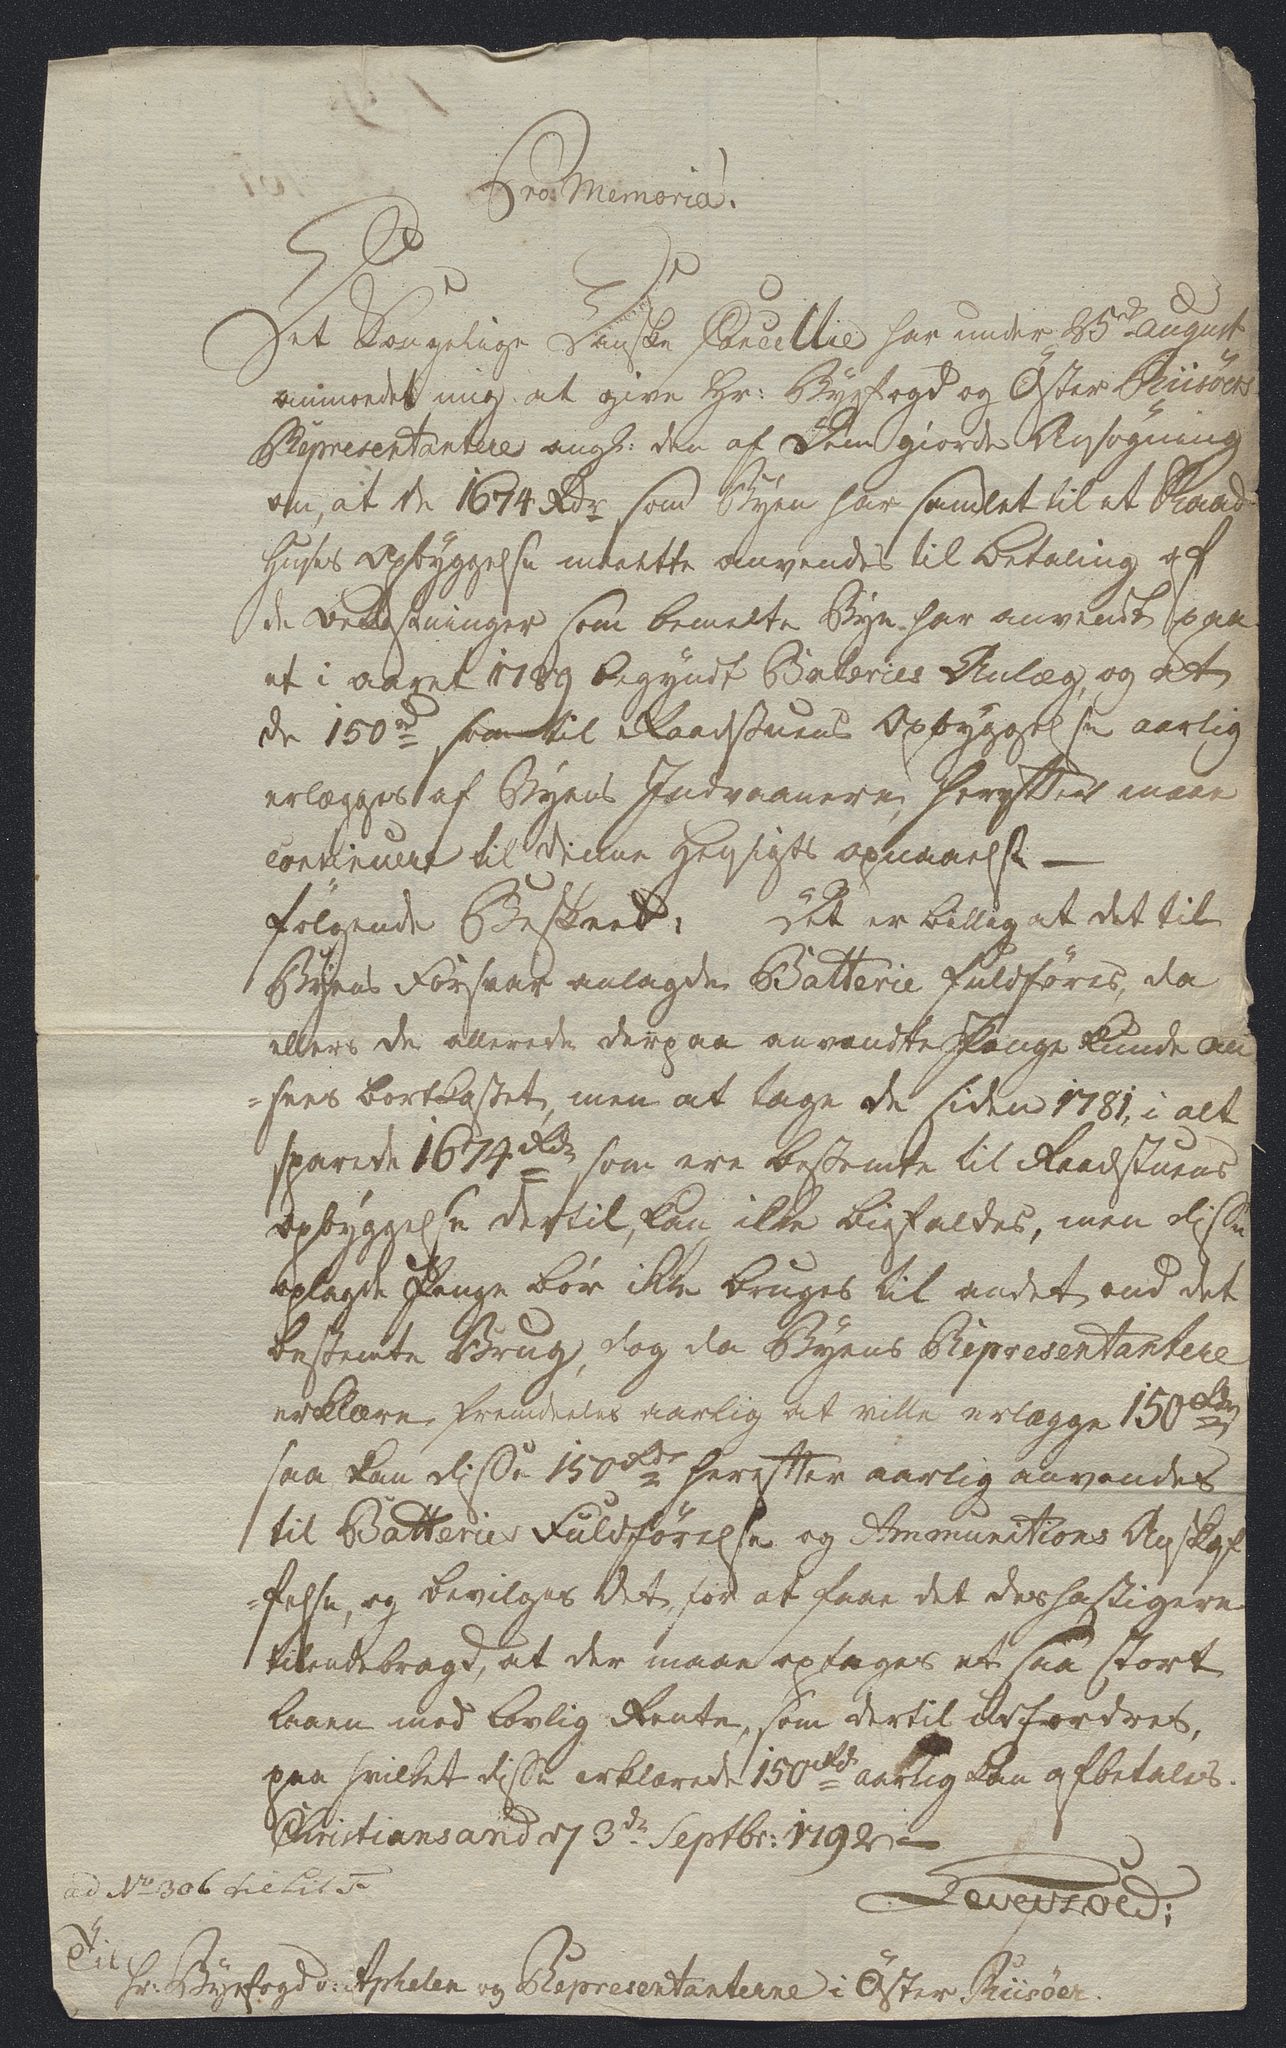 Pro Memoria.
Det Kongelige Danske Cancellie har under 25de august
anmodet mig at give Hr: Byefogd og Öster Riisöers
Representantere angl: den af Dem giorde Ansögning
om, at de 1674 Rdr som Byen har samlet til et Raad
Huses Opbyggelse maatte anvendes til betaling af
de bekostninger som bemelte Bye har anvendt paa
et i aaret 1789 begyndt Batteries Anlæg, og at
de 150 rd som til Raadstuens Opbyggelse aarlig
erlægges af Byens Indvaanere, herefter maae
continuere til denne Hensigts opnaaelse —
følgende Beskeed: Det er billig at det til
Byens Forsvar anlagde Batterie fuldföres, da
ellers de allerede derpaa anvendte Penge kunde an
=sees bortkastet, men at tage de siden 1781, i alt
sparede 1674 Rdr som ere bestemte til Raadstuens
opbyggelse dertil, kan ikke bifaldes, men disse
oplagde Penge bör ikke bruges til andet end det
bestemte Brug, dog da Byens Representantere
erklære fremdeeles aarlig at ville erlægge 150 Rdr
saa kan disse 150 Rdr herefter aarlig anvendes
til Batteries Fuldförelse og Ammunitions Anskaf
=felse, og bevilges det, for at faae det des hastigere
tilendebragd, at der maae optages et saa stort
laaen med lovlig Rente, som dertil udfordres,
paa hvilket disse erklærede 150 Rdr aarlig kan afbetales.
Christiansand d 3de Septbr: 1792 —
ad No 306 
Levetzoed:
Til
Hr: Byefogd v: Aphelen og Representanterne i Öster Riisöer.